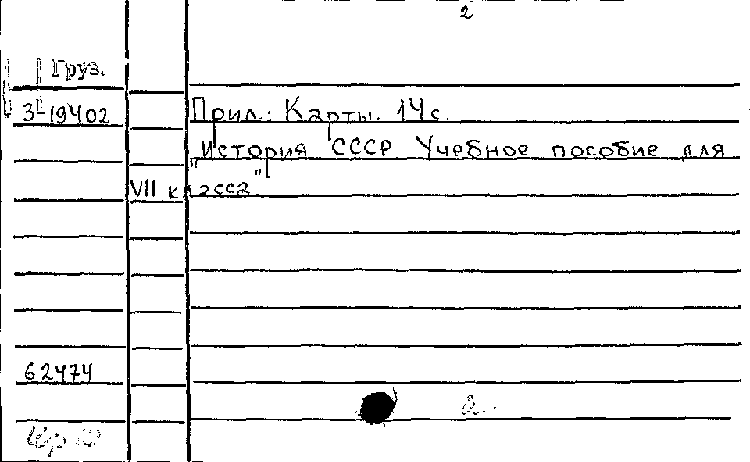 2
Груз.
3-19402
Прил.: Карты. 14с.
"История СССР Учебное пособие для
VII класса"
62474